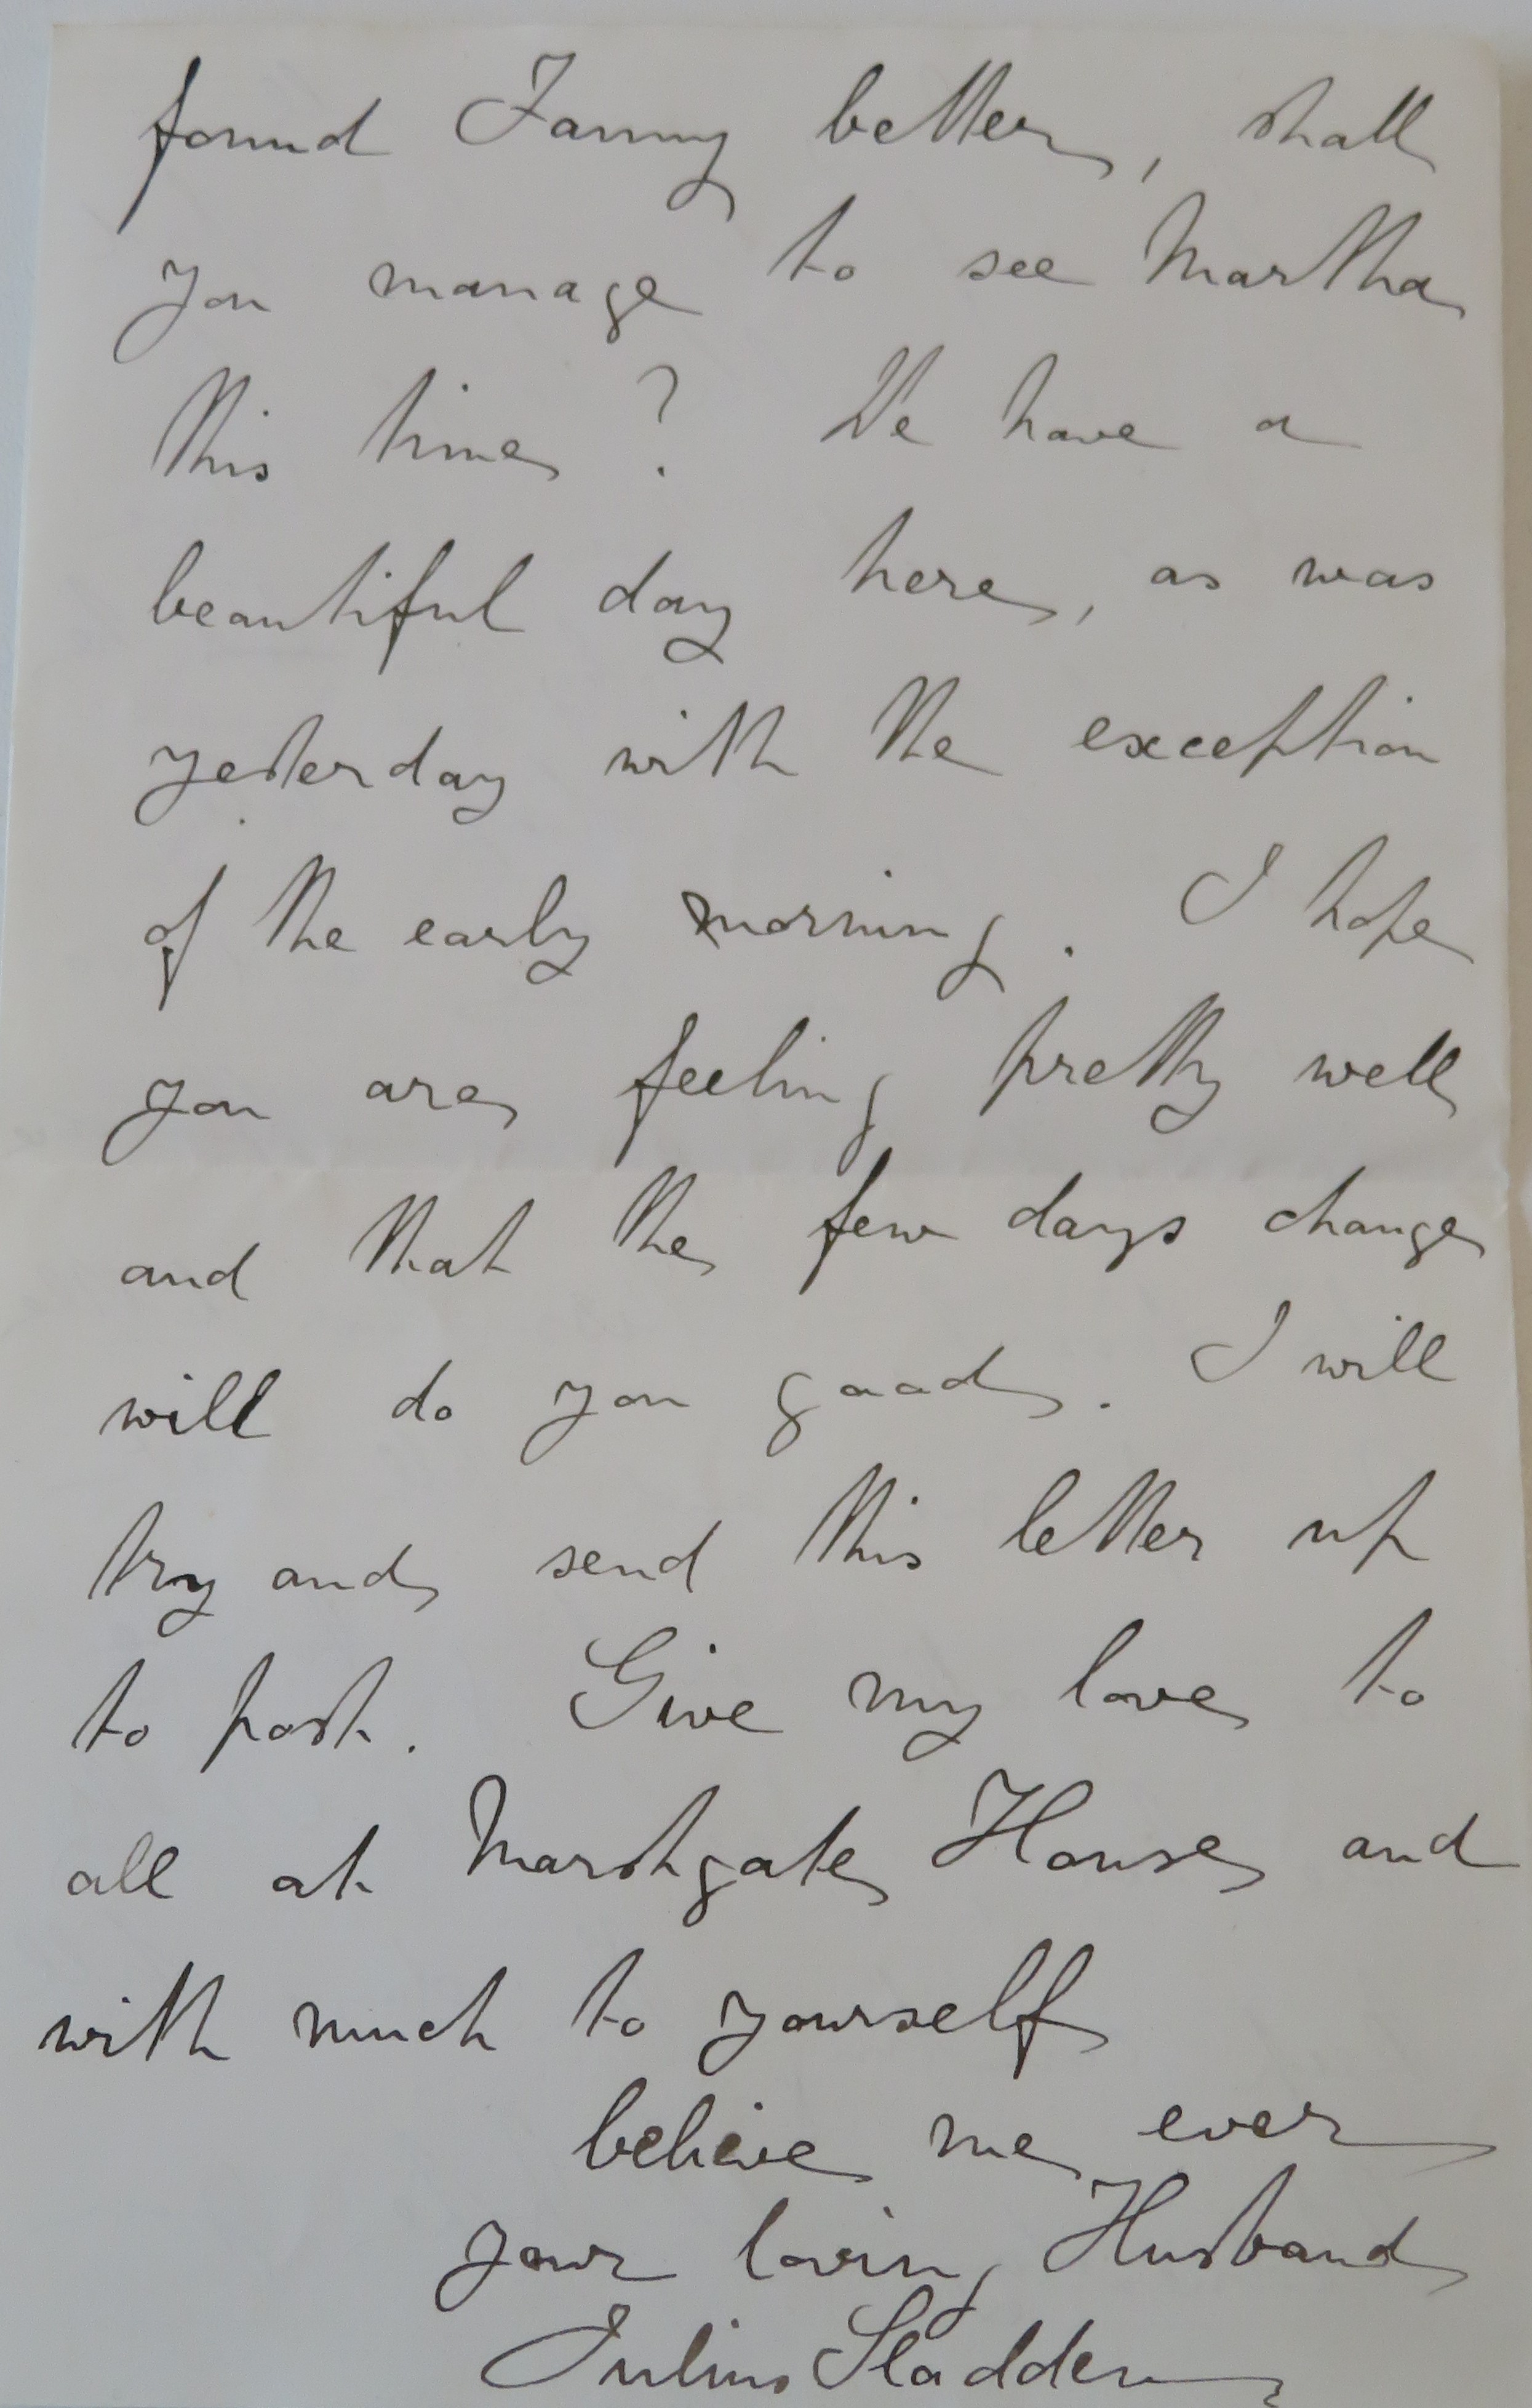 found Fanny better, shall
you manage to see Martha
this time? We have a
beautiful day here, as was
yesterday with the exception
of the early morning. I hope
you are feeling pretty well
and that the few days change
will do you good. I will
try and send this letter up
to post. Give my love to
all at Marshgate House and
with much to yourself
believe me ever
your loving Husband
Julius Sladden